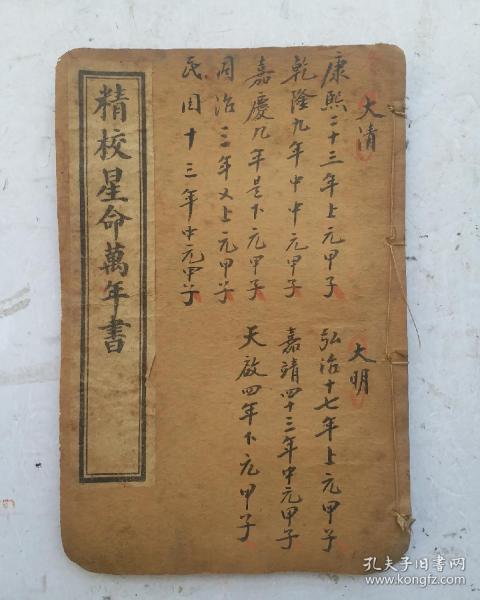 大清
康熙二十三年上元甲子
乾隆九年中中元甲子
嘉慶九年是下元甲子
同治三年又上元甲子
民国十三年中元甲子
大明
弘治十七年上元甲子
嘉靖四十三年中元甲子
天啟四年下元甲子
精校星命萬年書
孔夫子旧书网
www.kongfz.com